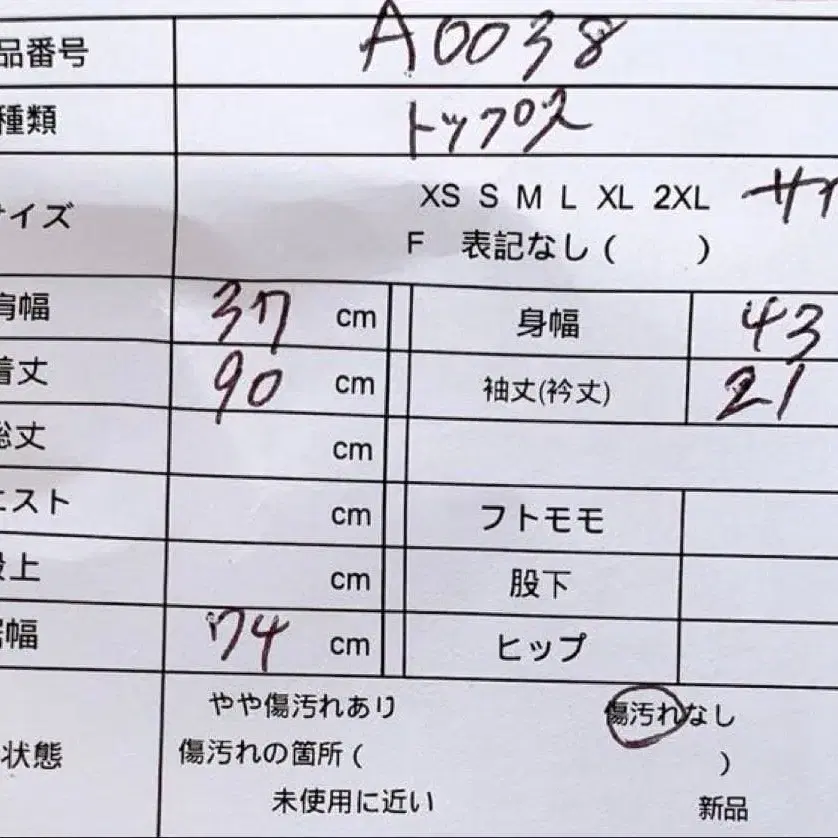 品番号 A0038
種類 トップス
サイズ XS S M L XL 2XL サイ
F 表記なし( )
肩幅 37 cm 身幅 43
着丈 90 cm 袖丈(衿丈) 21
総丈 cm
エスト cm フトモモ
股上 cm 股下
裾幅 74 cm ヒップ
やや傷汚れあり 傷汚れなし
状態 傷汚れの箇所( )
未使用に近い 新品